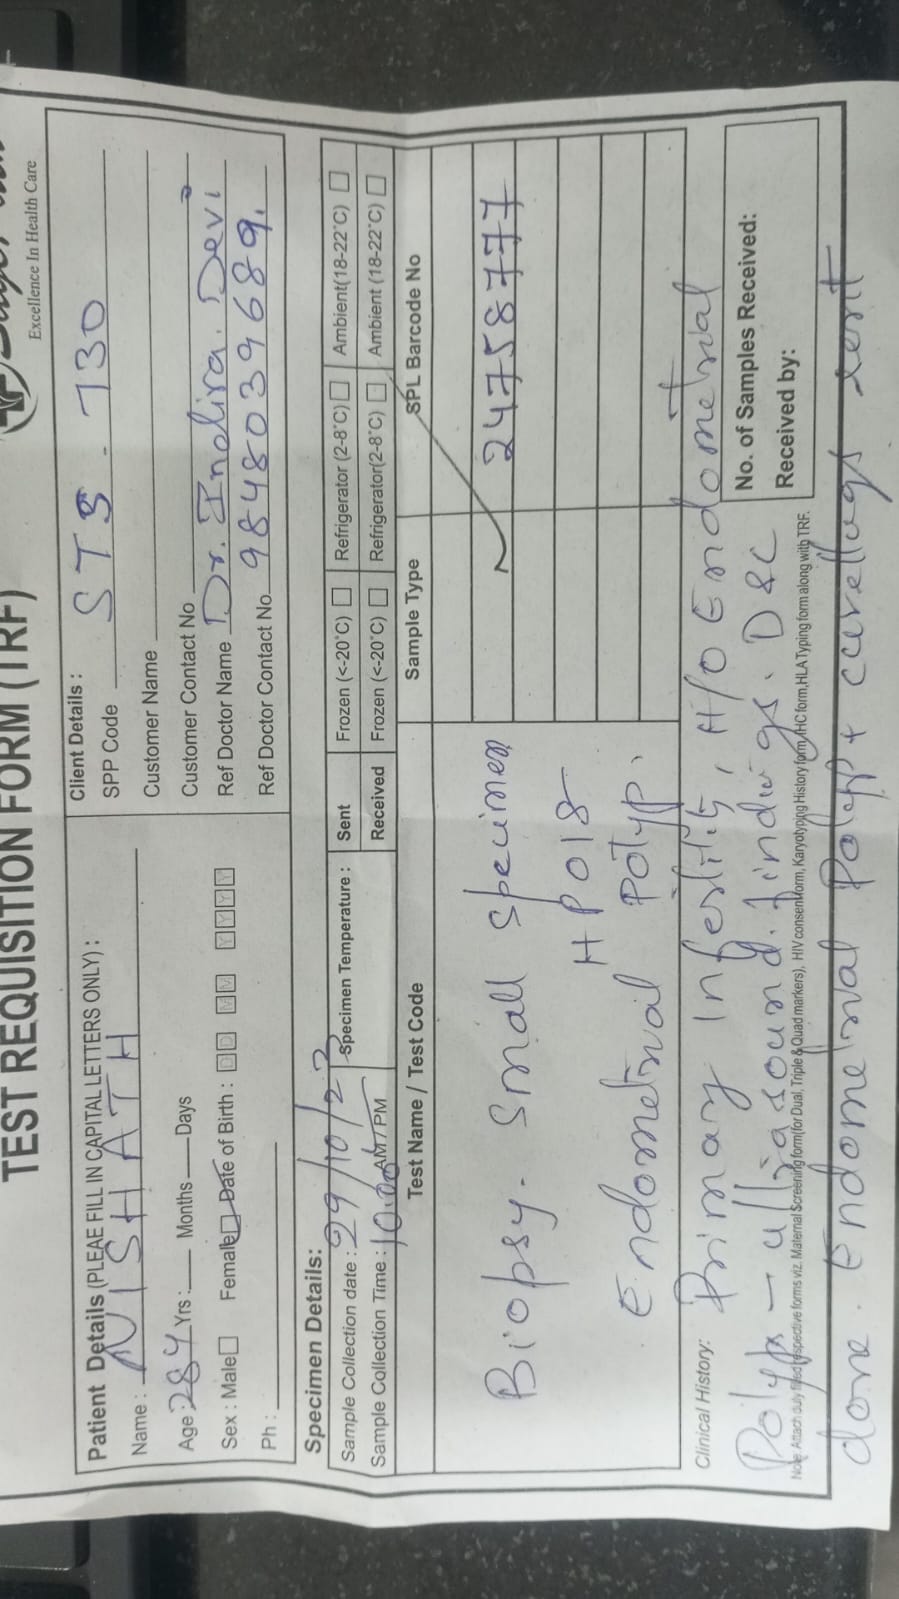 Excellence In Health Care
TEST REQUISITION FORM (TRF)
Patient Details (PLEAE FILL IN CAPITAL LETTERS ONLY) :
Name : NISHATH
Age : 28Y Yrs : Months Days
Sex : Male Female Date of Birth : D D M M Y Y Y Y
Ph :
Client Details :
SPP Code STS - 730
Customer Name
Customer Contact No
Ref Doctor Name Dr. Indira Devi
Ref Doctor Contact No 9848039689.
Specimen Details:
Sample Collection date : 29/10/22
Sample Collection Time : 10:00 AM / PM
Specimen Temperature :
Sent Frozen (<-20°C) Refrigerator (2-8°C) Ambient(18-22°C)
Received Frozen (<-20°C) Refrigerator(2-8°C) Ambient (18-22°C)
Test Name / Test Code Sample Type SPL Barcode No
Biopsy. Small specimen 24758777
HP018
Endometrial Polyp.
Clinical History: Primary Infertility, H/O Endometrial
Polyp - ultrasound. findings. D&C
No. of Samples Received:
Received by:
Note: Attach duly filled respective forms viz. Maternal Screening form(for Dual, Triple & Quad markers), HIV consent form, Karyotyping History form, IHC form, HLA Typing form along with TRF.
done. Endometrial Polyp + sent